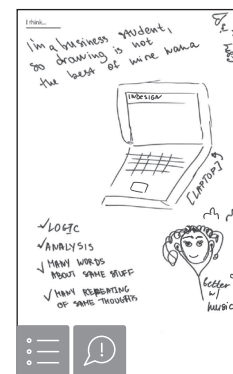 I think...
I'm a business student,
so drawing is not
the best of mine haha
INDESIGN
[LAPTOP]
✓LOGIC
✓ANALYSIS
✓ MANY WORDS
ABOUT SAME STUFF
✓ MANY REPEATING
OF SAME THOUGHTS
better
w/
music